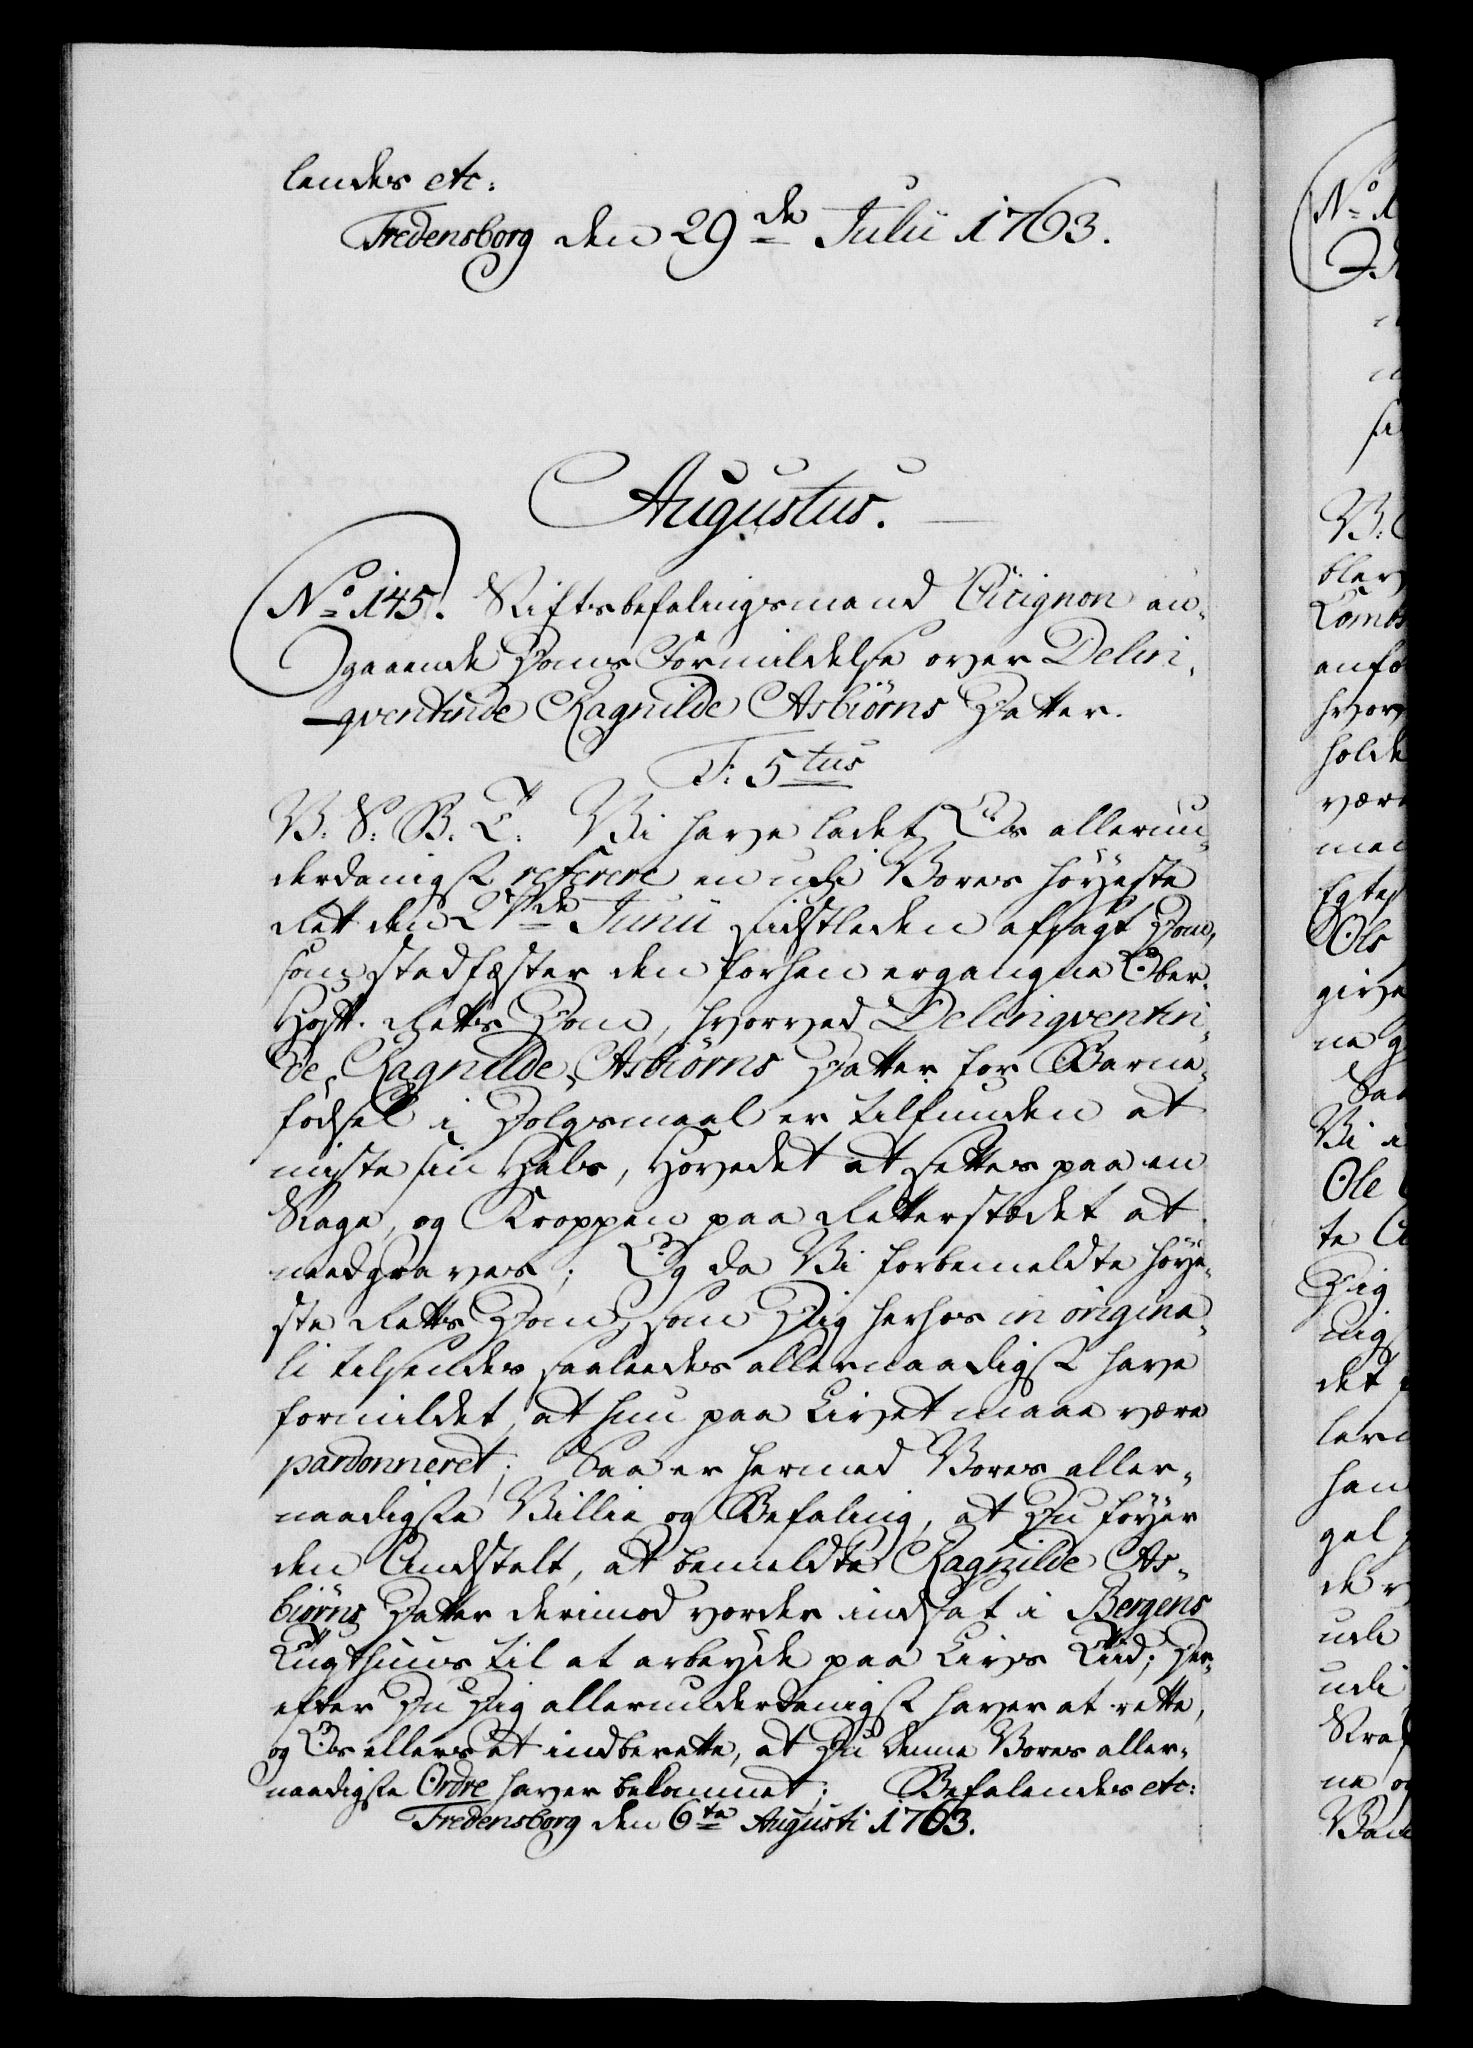 lendes etc:
Fredensborg den 29de Julii 1763.
Augustus.
No 145. Stiftsbefalingsmand Cicignon an-
gaaende Doms Formildelse over Delin-
qventinde Ragnilde Asbiörns Datter.
F: 5tus
V. S: B. T: Vi have ladet Os allerun-
derdanigst referere en udi Vores höyeste
Rett den 27de Junii sidstleden afsagt Dom,
som stadfæster den forhen ergangne Ober-
Hoff. Retts Dom, hvorved Delinqventin-
de Ragnilde Asbiörns Datter for Barne-
födsel i Dolgsmaal er tilfunden at
miste sin Hals, Hovedet at settes paa en
Stage, og Kroppen paa Retterstædet at
needgraves; Og da Vi forbemeldte höye-
ste Retts Dom, som Dig herhos in origina-
li tilsendes saaledes allernaadigst have
formildet, at hun paa Livet maae være
pardonneret; Saa er hermed Vores aller-
naadigste Villie og Befaling, at Du föyer
den Anstalt, at bemeldte Ragnilde As-
biörns Datter derimod vorder indsat i Bergens
Tugthuus til at arbeyde paa Livs Tiid; Der-
efter Du Dig allerunderdanigst haver at rette,
og Os ellers at indberette, at Du denne Vores aller-
naadigste Ordre haver bekommet; Befalendes etc:
Fredensborg den 6te Augusti 1763.